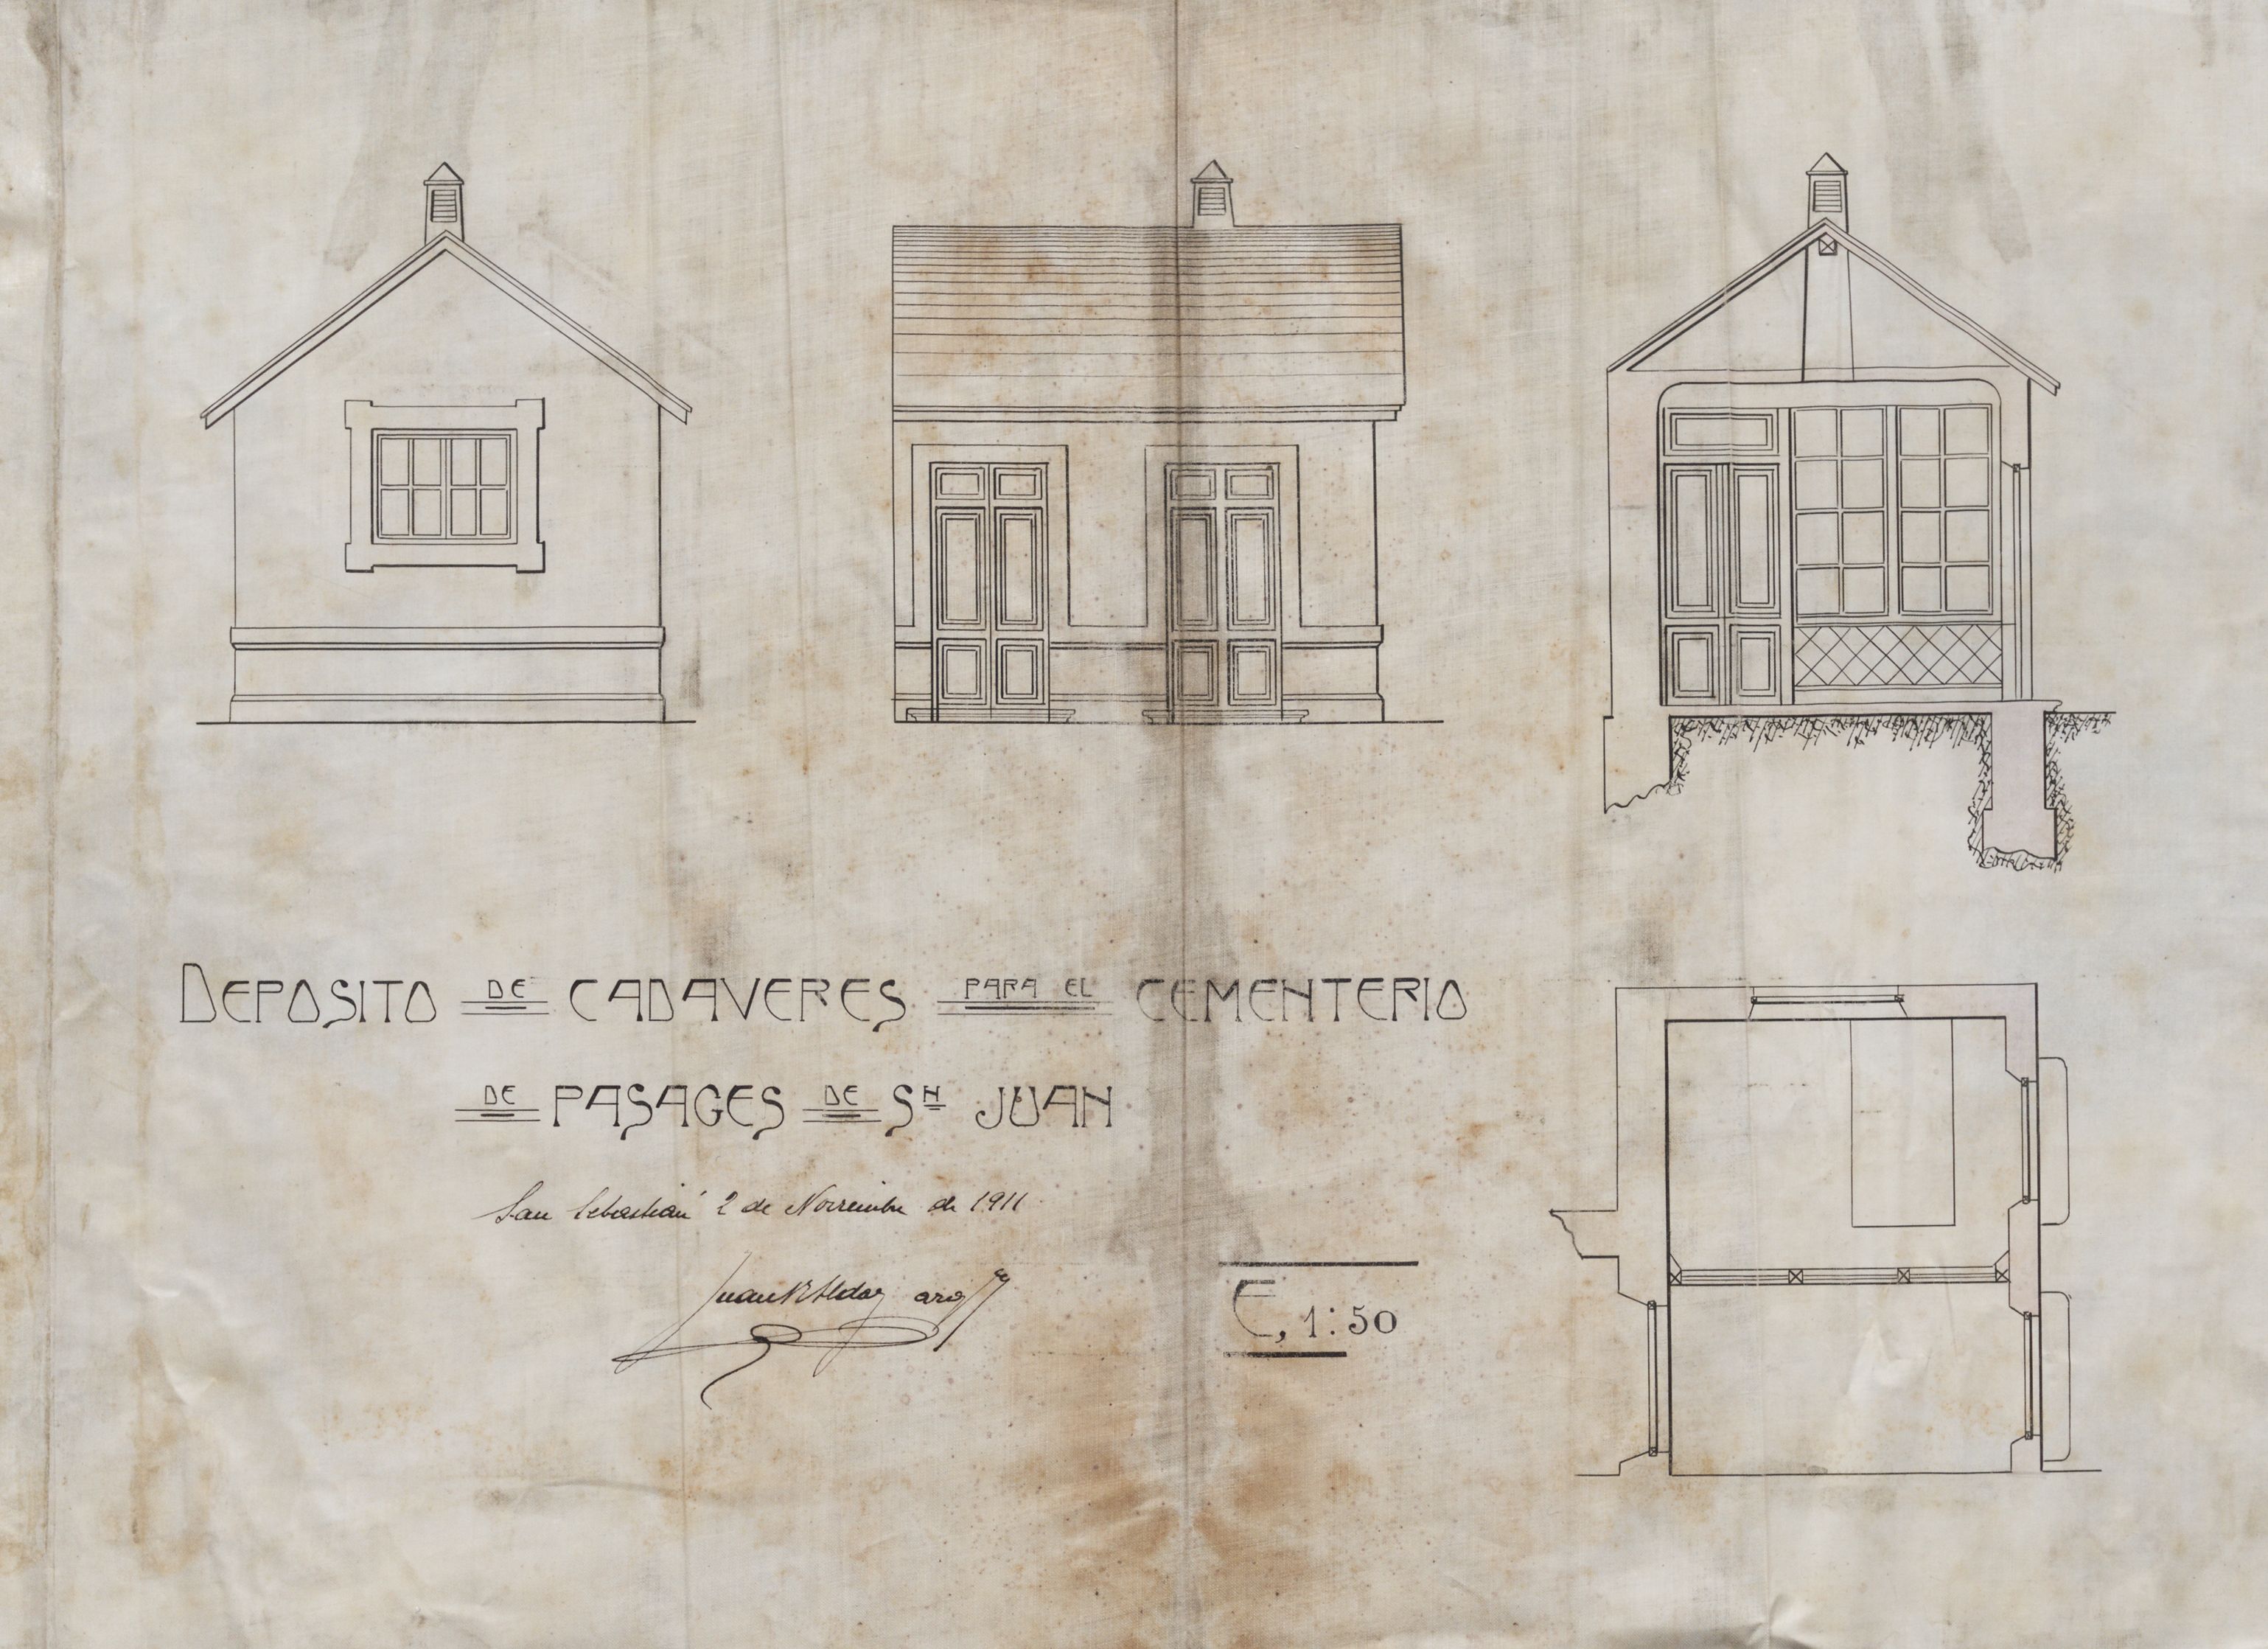 DEPOSITO DE CADAVERES PARA EL CEMENTERIO
DE PASAGES DE Sᴺ JUAN
San Sebastián 2 de Noviembre de 1911
Juan R Alday arqto
E, 1:50